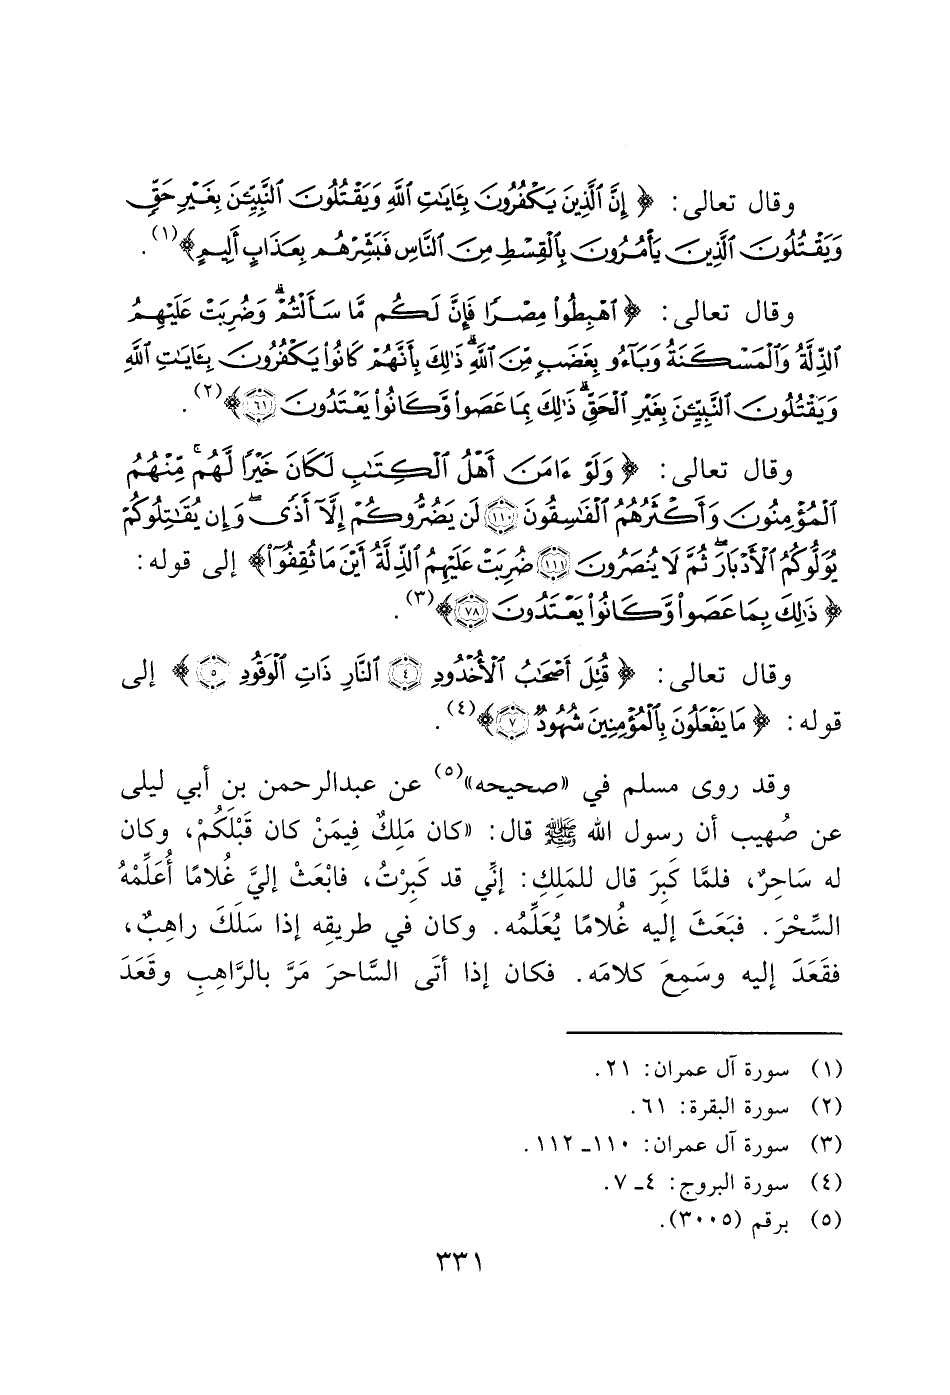 وقال تعالى: ﴿ إِنَّ ٱلَّذِينَ يَكْفُرُونَ بِـَٔايَٰتِ ٱللَّهِ وَيَقْتُلُونَ ٱلنَّبِيِّـۧنَ بِغَيْرِ حَقٍّ
وَيَقْتُلُونَ ٱلَّذِينَ يَأْمُرُونَ بِٱلْقِسْطِ مِنَ ٱلنَّاسِ فَبَشِّرْهُم بِعَذَابٍ أَلِيمٍ ﴾(١).
وقال تعالى: ﴿ ٱهْبِطُوا۟ مِصْرًا فَإِنَّ لَكُم مَّا سَأَلْتُمْ ۗ وَضُرِبَتْ عَلَيْهِمُ
ٱلذِّلَّةُ وَٱلْمَسْكَنَةُ وَبَآءُو بِغَضَبٍ مِّنَ ٱللَّهِ ۗ ذَٰلِكَ بِأَنَّهُمْ كَانُوا۟ يَكْفُرُونَ بِـَٔايَٰتِ ٱللَّهِ
وَيَقْتُلُونَ ٱلنَّبِيِّـۧنَ بِغَيْرِ ٱلْحَقِّ ۗ ذَٰلِكَ بِمَا عَصَوا۟ وَّكَانُوا۟ يَعْتَدُونَ ٦١ ﴾(٢).
وقال تعالى: ﴿ وَلَوْ ءَامَنَ أَهْلُ ٱلْكِتَٰبِ لَكَانَ خَيْرًا لَّهُم ۚ مِّنْهُمُ
ٱلْمُؤْمِنُونَ وَأَكْثَرُهُمُ ٱلْفَٰسِقُونَ ١١٠ لَن يَضُرُّوكُمْ إِلَّآ أَذًى ۖ وَإِن يُقَٰتِلُوكُمْ
يُوَلُّوكُمُ ٱلْأَدْبَارَ ۖ ثُمَّ لَا يُنصَرُونَ ١١١ ضُرِبَتْ عَلَيْهِمُ ٱلذِّلَّةُ أَيْنَ مَا ثُقِفُوٓا۟ ﴾ إلى قوله:
﴿ ذَٰلِكَ بِمَا عَصَوا۟ وَّكَانُوا۟ يَعْتَدُونَ ٧٨ ﴾(٣).
وقال تعالى: ﴿ قُتِلَ أَصْحَٰبُ ٱلْأُخْدُودِ ٤ ٱلنَّارِ ذَاتِ ٱلْوَقُودِ ٥ ﴾ إلى
قوله: ﴿ مَا يَفْعَلُونَ بِٱلْمُؤْمِنِينَ شُهُودٌ ٧ ﴾(٤).
وقد روى مسلم في «صحيحه»(٥) عن عبدالرحمن بن أبي ليلى
عن صُهيب أن رسول الله ﷺ قال: «كان مَلِكٌ فِيمَنْ كان قَبْلَكُمْ، وكان
له سَاحِرٌ، فلمَّا كَبِرَ قال للمَلِكِ: إنِّي قد كَبِرْتُ، فابْعَثْ إليَّ غُلامًا أُعَلِّمْهُ
السِّحْرَ. فبَعَثَ إليه غُلامًا يُعَلِّمُه. وكان في طريقِه إذا سَلَكَ راهِبٌ،
فقَعَدَ إليه وسَمِعَ كلامَه. فكان إذا أتَى السَّاحرَ مَرَّ بالرَّاهِبِ وقَعَدَ
(١) سورة آل عمران: ٢١.
(٢) سورة البقرة: ٦١.
(٣) سورة آل عمران: ١١٠ـ ١١٢.
(٤) سورة البروج: ٤ـ ٧.
(٥) برقم (٣٠٠٥).
٣٣١